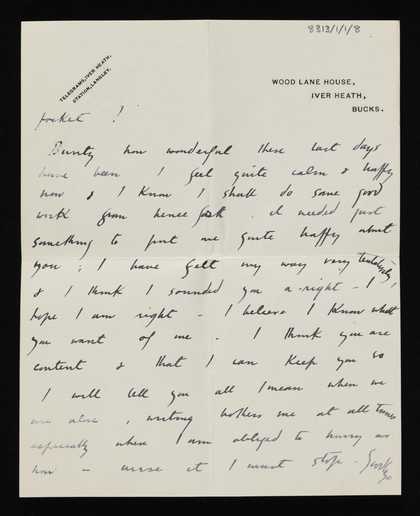 8313/1/1/8
TELEGRAMS, IVER HEATH.
STATION, LANGLEY.
WOOD LANE HOUSE,
IVER HEATH,
BUCKS.
pocket!
Bunty how wonderful these last days
have been I feel quite calm & happy
now & I know I shall do some good
work from hence forth. it needed just
something to put me quite happy about
you; I have felt my way very tentatively
& I think I sounded you a-right - I
hope I am right - I believe I know what
you want of me. I think you are
content & that I can keep you so
I will tell you all I mean when we
are alone, writing bothers me at all times
especially when I am obliged to hurry as
now - curse it I must stop -